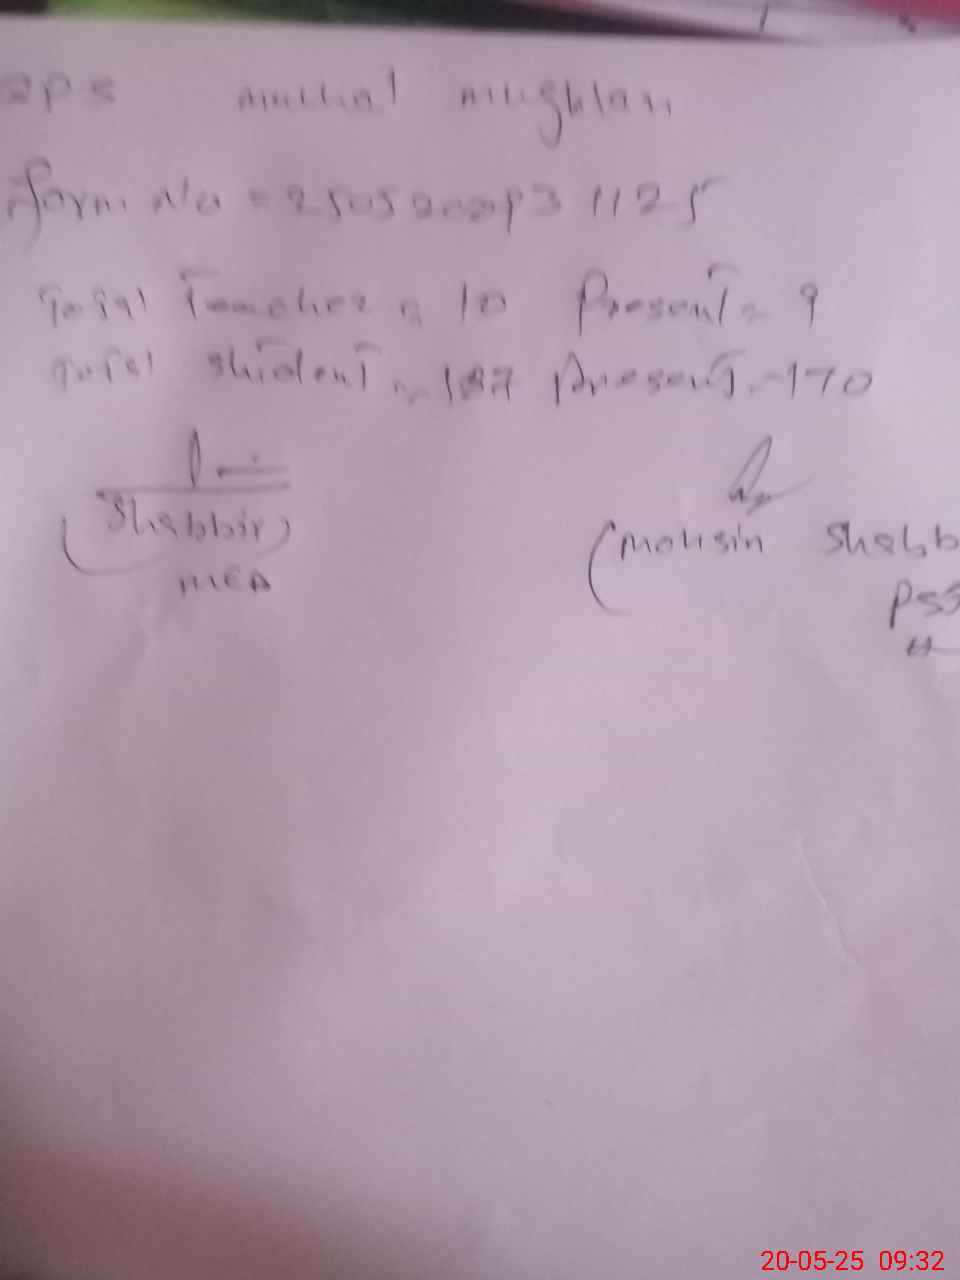 GPS muchal mughlan
Form No = 2505202093 1125
Total Teacher = 10 Present = 9
Total Student = 187 Present = 170
(Shabbir) (Mohsin Shabb
MEA
20-05-25 09:32